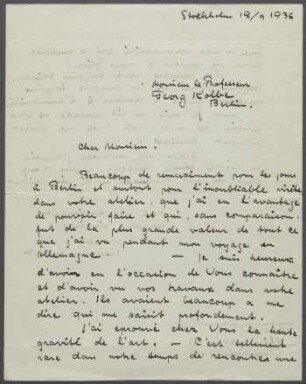 Stockholm 19/9 1936
Monsieur le Professeur
Georg Kolbe
Berlin.
Cher Monsieur.
Beaucoup de remerciment pour les jours
à Berlin et surtout pour l'inoubliable visite
dans votre atelier, que j'ai eu l'avantage
de pouvoir faire et qui, sans comparaison,
fut de la plus grande valeur de tout ce
que j'ai vu pendant mon voyage en
Allemagne. — Je suis heureux
d'avoir eu l'occasion de Vous connaître
et d'avoir vu vos travaux dans votre
atelier. Ils avaient beaucoup a me
dire qui me saisit profondement.
J'ai eprouvé chez Vous la haute
gravité de l'art. — C'est tellement
rare dans notre temps de rencontrer une